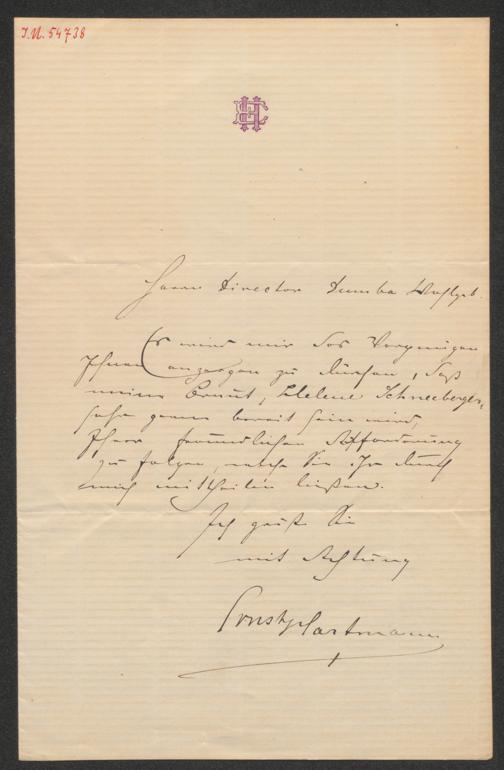 I.N. 54738
EH
Herrn Director Dumba Wohlgeb.
Es wird mir das Vergnügen
Ihnen anzeigen zu dürfen, daß
meine Braut, Helene Schneeberger,
sehr gerne bereit sein wird,
Ihrer freundlichen Aufforderung
zu folgen, welche Sie ihr durch
mich mittheilen ließen.
Ich grüße Sie
mit Achtung
Ernst Hartmann